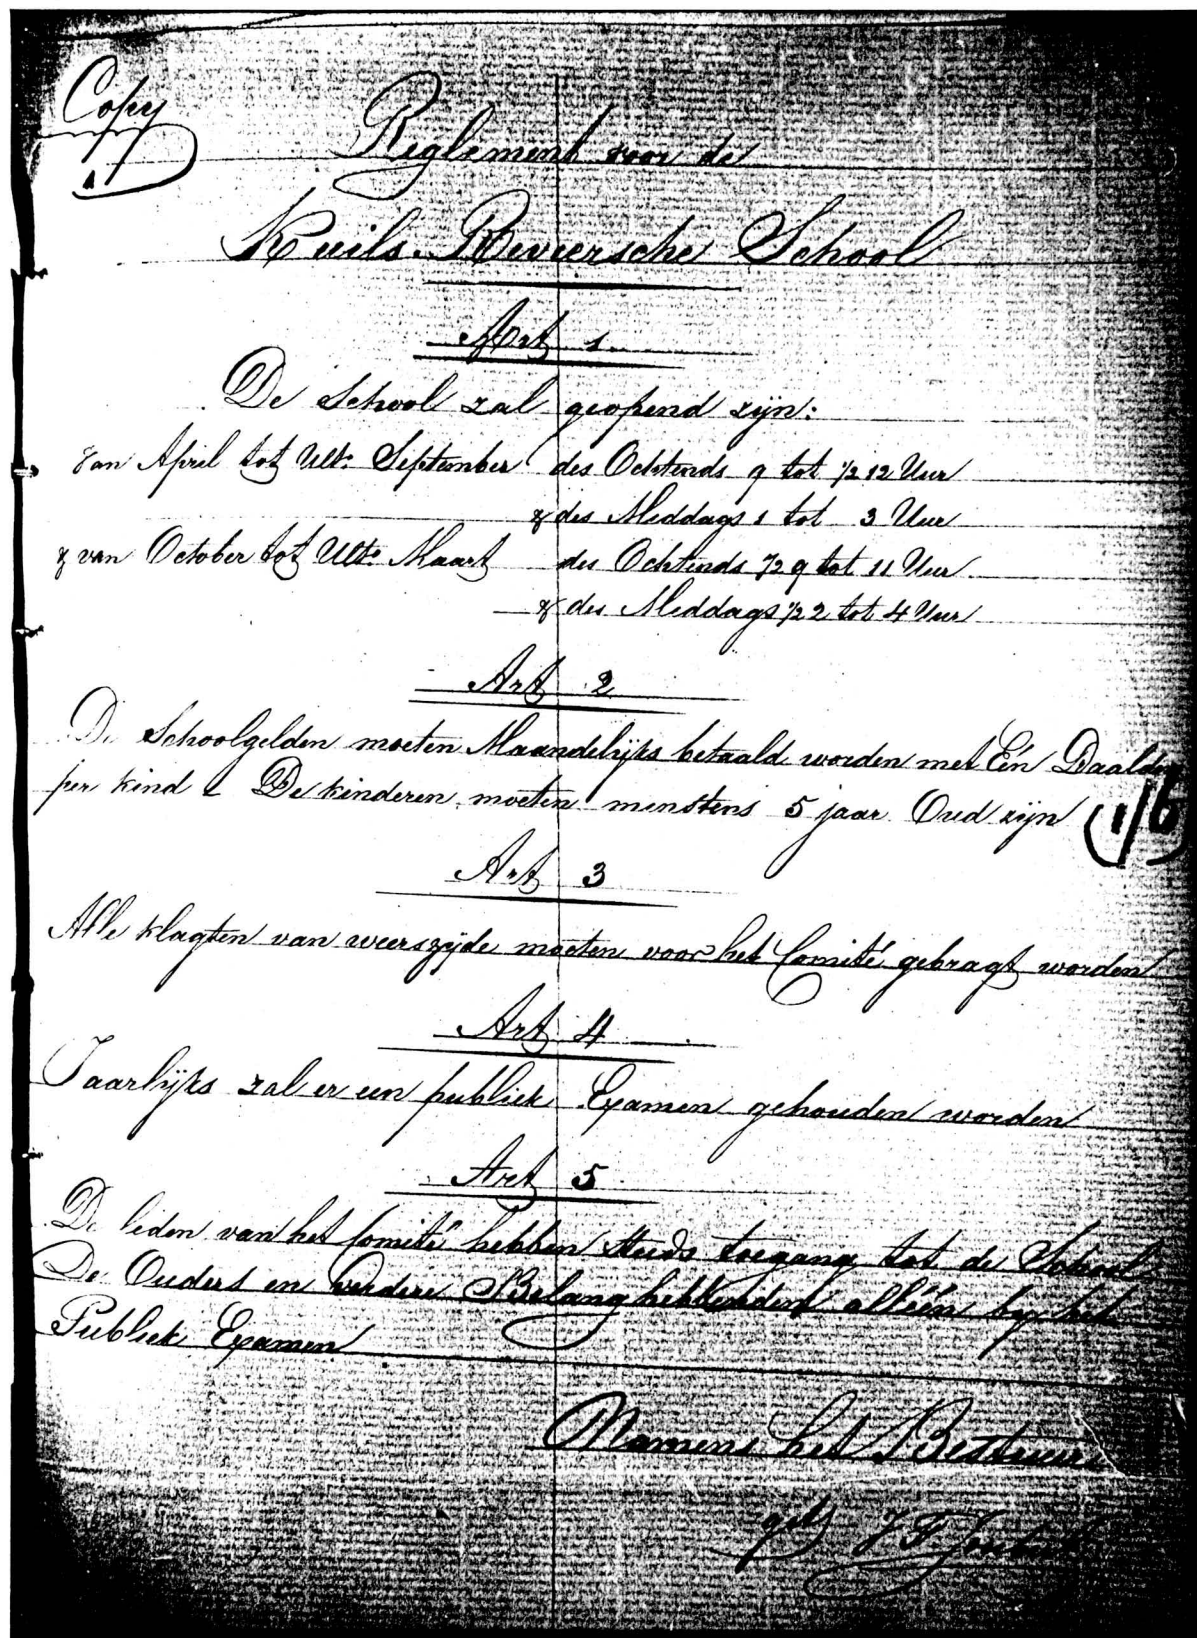 Copy
Reglement voor de
Kuils-Reviersche School
Art 1
De School zal geopend zijn:
van April tot Ulto. September des Ochtends 9 tot 1/2 12 Uur
& des Middags 1 tot 3 Uur
& van October tot Ulto. Maart des Ochtends 1/2 9 tot 11 Uur
& des Middags 1/2 2 tot 4 Uur
Art 2
De Schoolgelden moeten Maandelijks betaald worden met Eén Daalder
per kind & De kinderen moeten minstens 5 jaar Oud zijn (1/6)
Art 3
Alle klagten van weerszijde moeten voor het Comité gebragt worden
Art 4
Jaarlijks zal er een publiek Examen gehouden worden
Art 5
De leden van het Comité hebben steeds toegang tot de School
De Ouders en verdere Belanghebbenden alléén by het
Publiek Examen
Namens het Bestuur
get J F